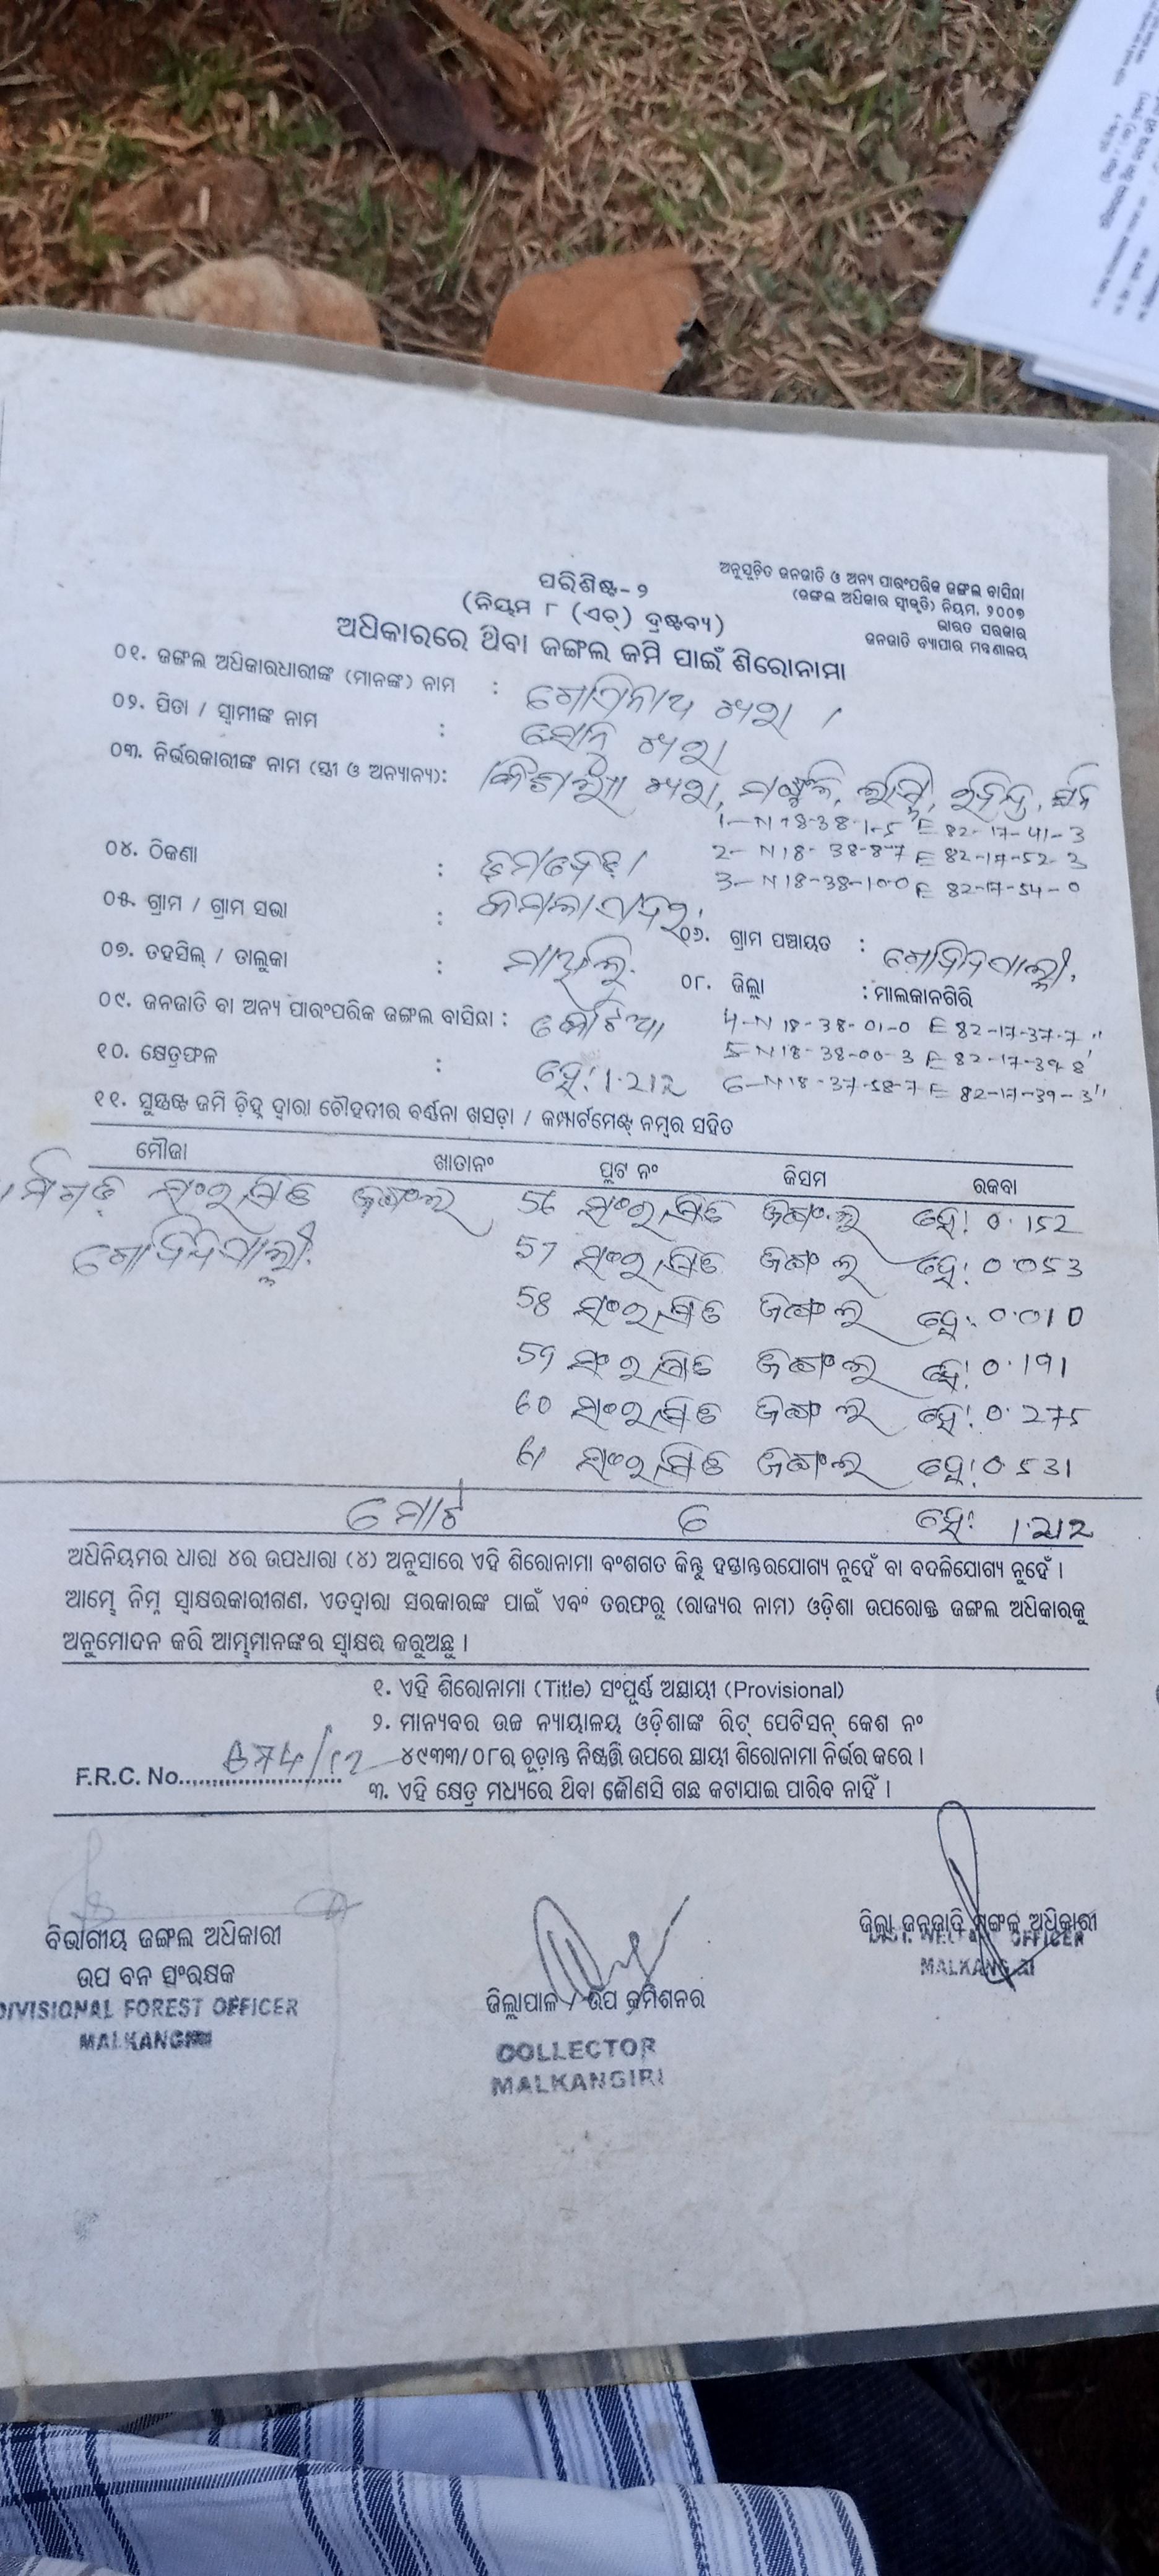 ପରିଶିଷ୍ଟ-୨
(ନିୟମ ୮ (ଏଚ୍) ଦ୍ରଷ୍ଟବ୍ୟ)
ଅନୁସୂଚିତ ଜନଜାତି ଓ ଅନ୍ୟ ପାରଂପରିକ ଜଙ୍ଗଲ ବାସିନ୍ଦା
(ଜଙ୍ଗଲ ଅଧିକାର ସ୍ୱୀକୃତି) ନିୟମ, ୨୦୦୭
ଭାରତ ସରକାର
ଜନଜାତି ବ୍ୟାପାର ମନ୍ତ୍ରଣାଳୟ
ଅଧିକାରରେ ଥିବା ଜଙ୍ଗଲ ଜମି ପାଇଁ ଶିରୋନାମା
୦୧. ଜଙ୍ଗଲ ଅଧିକାରଧାରୀଙ୍କ (ମାନଙ୍କ) ନାମ :
୦୨. ପିତା / ସ୍ୱାମୀଙ୍କ ନାମ :
୦୩. ନିର୍ଭରକାରୀଙ୍କ ନାମ (ସ୍ତ୍ରୀ ଓ ଅନ୍ୟାନ୍ୟ):
1-N 18-38-1-5 E 82-17-41-3
2- N18- 38-8-7 E 82-17-52-3
3-N18-38-10-0 E 82-17-54-0
୦୪. ଠିକଣା :
୦୫. ଗ୍ରାମ / ଗ୍ରାମ ସଭା :
୦୬. ଗ୍ରାମ ପଞ୍ଚାୟତ : ଗୋବିନ୍ଦପାଲ୍ଲୀ
୦୭. ତହସିଲ୍ / ତାଲୁକା : ମାଥିଲି
୦୮. ଜିଲ୍ଲା : ମାଲକାନଗିରି
୦୯. ଜନଜାତି ବା ଅନ୍ୟ ପାରଂପରିକ ଜଙ୍ଗଲ ବାସିନ୍ଦା :
4-N 18-38-01-0 E 82-17-37-7"
5-N18-38-00-3 E 82-17-39-8'
6-N18-37-58-7 E 82-17-39-3"
୧୦. କ୍ଷେତ୍ରଫଳ : ହେ: 1.212
୧୧. ସୁସ୍ପଷ୍ଟ ଜମି ଚିହ୍ନ ଦ୍ୱାରା ଚୌହଦୀର ବର୍ଣ୍ଣନା ଖସଡ଼ା / କମ୍ପାର୍ଟମେଣ୍ଟ୍ ନମ୍ବର ସହିତ
ମୌଜା ଖାତାନଂ ପ୍ଲଟ ନଂ କିସମ ରକବା
ସଂରକ୍ଷିତ ଜଙ୍ଗଲ 56 ସଂରକ୍ଷିତ ଜଙ୍ଗଲ ହେ: 0.152
ଗୋବିନ୍ଦପାଲ୍ଲୀ 57 ସଂରକ୍ଷିତ ଜଙ୍ଗଲ ହେ: 0.053
58 ସଂରକ୍ଷିତ ଜଙ୍ଗଲ ହେ: 0.010
59 ସଂରକ୍ଷିତ ଜଙ୍ଗଲ ହେ: 0.191
60 ସଂରକ୍ଷିତ ଜଙ୍ଗଲ ହେ: 0.275
61 ସଂରକ୍ଷିତ ଜଙ୍ଗଲ ହେ: 0.531
ମୋଟ 6 ହେ: 1.212
ଅଧିନିୟମର ଧାରା ୪ର ଉପଧାରା (୪) ଅନୁସାରେ ଏହି ଶିରୋନାମା ବଂଶଗତ କିନ୍ତୁ ହସ୍ତାନ୍ତରଯୋଗ୍ୟ ନୁହେଁ ବା ବଦଳିଯୋଗ୍ୟ ନୁହେଁ ।
ଆମ୍ଭେ ନିମ୍ନ ସ୍ୱାକ୍ଷରକାରୀଗଣ, ଏତଦ୍ୱାରା ସରକାରଙ୍କ ପାଇଁ ଏବଂ ତରଫରୁ (ରାଜ୍ୟର ନାମ) ଓଡ଼ିଶା ଉପରୋକ୍ତ ଜଙ୍ଗଲ ଅଧିକାରକୁ
ଅନୁମୋଦନ କରି ଆମ୍ଭମାନଙ୍କର ସ୍ୱାକ୍ଷର କରୁଅଛୁ ।
୧. ଏହି ଶିରୋନାମା (Title) ସଂପୂର୍ଣ୍ଣ ଅସ୍ଥାୟୀ (Provisional)
୨. ମାନ୍ୟବର ଉଚ୍ଚ ନ୍ୟାୟାଳୟ ଓଡ଼ିଶାଙ୍କ ରିଟ୍ ପେଟିସନ୍ କେଶ ନଂ
୪୯୩୩/୦୮ର ଚୂଡ଼ାନ୍ତ ନିଷ୍ପତ୍ତି ଉପରେ ସ୍ଥାୟୀ ଶିରୋନାମା ନିର୍ଭର କରେ ।
F.R.C. No. 674/12
୩. ଏହି କ୍ଷେତ୍ର ମଧ୍ୟରେ ଥିବା କୌଣସି ଗଛ କଟାଯାଇ ପାରିବ ନାହିଁ ।
ବିଭାଗୀୟ ଜଙ୍ଗଲ ଅଧିକାରୀ
ଉପ ବନ ସଂରକ୍ଷକ
DIVISIONAL FOREST OFFICER
MALKANGIRI
ଜିଲ୍ଲାପାଳ / ଉପ କମିଶନର
COLLECTOR
MALKANGIRI
ଜିଲ୍ଲା ଜନଜାତି ମଙ୍ଗଳ ଅଧିକାରୀ
DIST. WELFARE OFFICER
MALKANGIRI